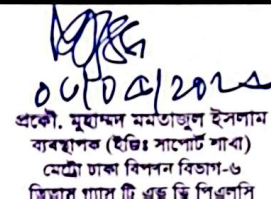 ০৮/০৫/২০২৪
প্রকৌ. মুহাম্মদ মমতাজুল ইসলাম
ব্যবস্থাপক (ইঞ্জিঃ সাপোর্ট শাখা)
মেট্রো ঢাকা বিপণন বিভাগ-৬
তিতাস গ্যাস টি এন্ড ডি পিএলসি